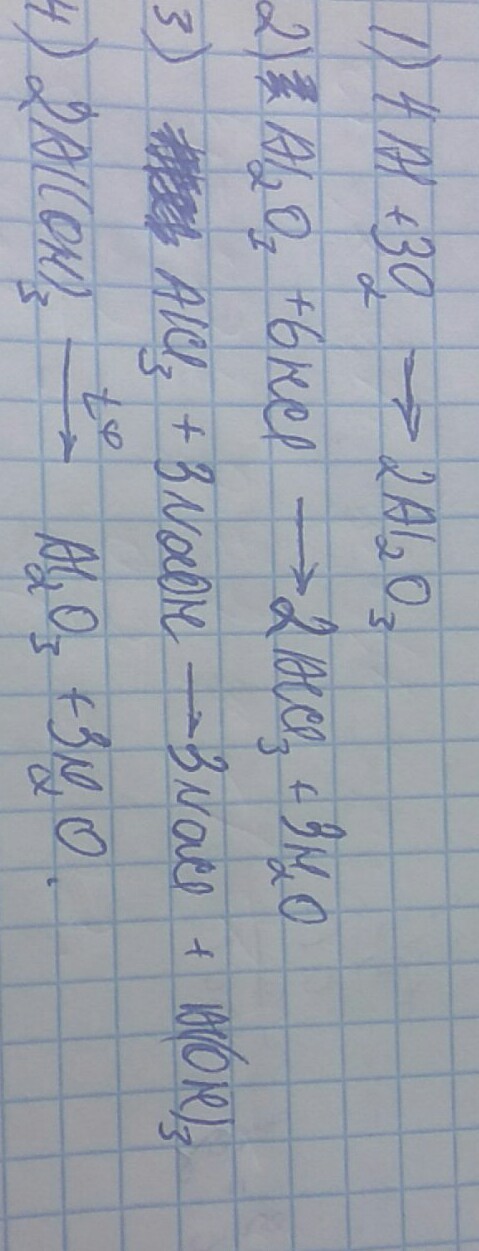 1) 4Al + 3O₂ → 2Al₂O₃
2) Al₂O₃ + 6HCl → 2AlCl₃ + 3H₂O
3) AlCl₃ + 3NaOH → 3NaCl + Al(OH)₃
4) 2Al(OH)₃ t° → Al₂O₃ + 3H₂O.